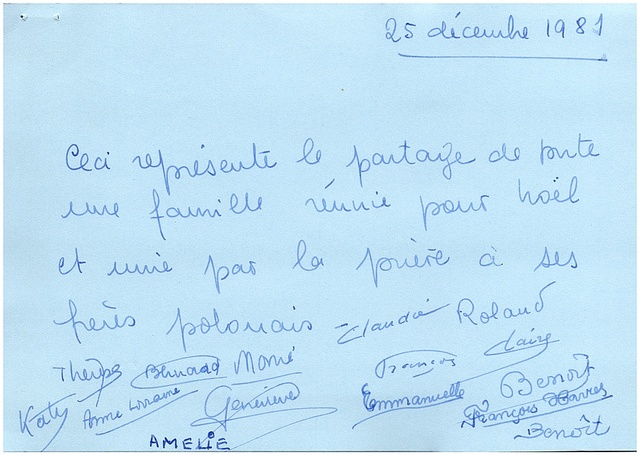 25 décembre 1981
Ceci représente le partage de toute
une famille réunie pour Noël
et unie par la prière à ses
frères polonais Claudie Roland
Bernard Mamé François Claire
Katy Anne Lorraine Geneviève Emmanuelle Benoît
AMELIE François Benoît